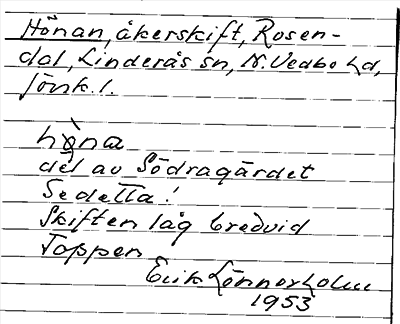 Hönan, åkerskift, Rosen-
dal, Linderås sn, N. Vedbo hd,
Jönk. l.
hø̀na
del av Södragärdet
Se detta!
Skiften låg bredvid
Toppen
Erik Lönnerholm
1953